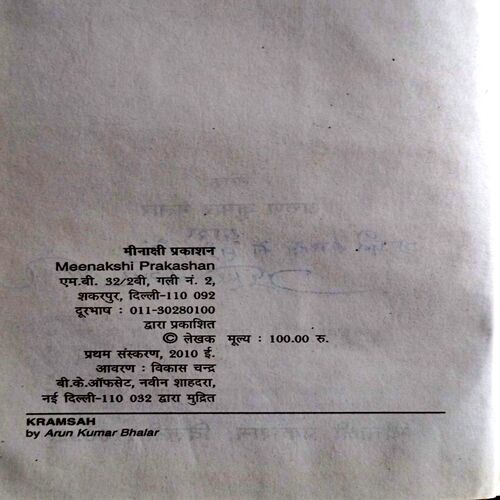 मीनाक्षी प्रकाशन
Meenakshi Prakashan
एम.बी. 32/2वी, गली नं. 2,
शकरपुर, दिल्ली-110 092
दूरभाष : 011-30280100
द्वारा प्रकाशित
© लेखक मूल्य : 100.00 रु.
प्रथम संस्करण, 2010 ई.
आवरण : विकास चन्द्र
बी.के.ऑफसेट, नवीन शाहदरा,
नई दिल्ली-110 032 द्वारा मुद्रित
KRAMSAH
by Arun Kumar Bhalar